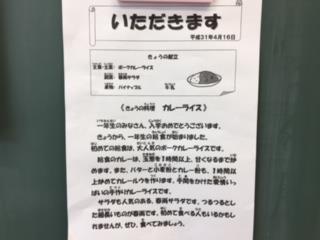 いただきます
平成31年4月16日
きょうの献立
主食・主菜： ポークカレーライス
副菜： 春雨サラダ
果物： パイナップル 牛乳
《きょうの料理 カレーライス》
一年生のみなさん、入学おめでとうございます。
きょうから、一年生の給食が始まりました。
初めての給食は、大人気のポークカレーライスです。
給食のカレーは、玉葱を1時間以上、甘くなるまで炒
めます。また、バターと小麦粉とカレー粉も、1時間以
上かけてカレールウを作ります。手間をかけた愛情いっ
ぱいの手作りカレーライスです。
サラダも人気のある、春雨サラダです。つるつるとし
た細長いものが春雨です。初めて食べる人もいるかもし
れませんが、ぜひ、食べてみましょう。